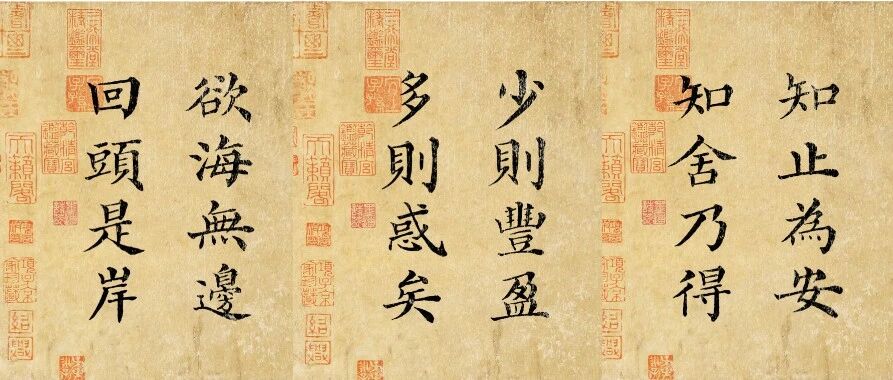 知止為安
知舍乃得
少則豐盈
多則惑矣
欲海無邊
回頭是岸